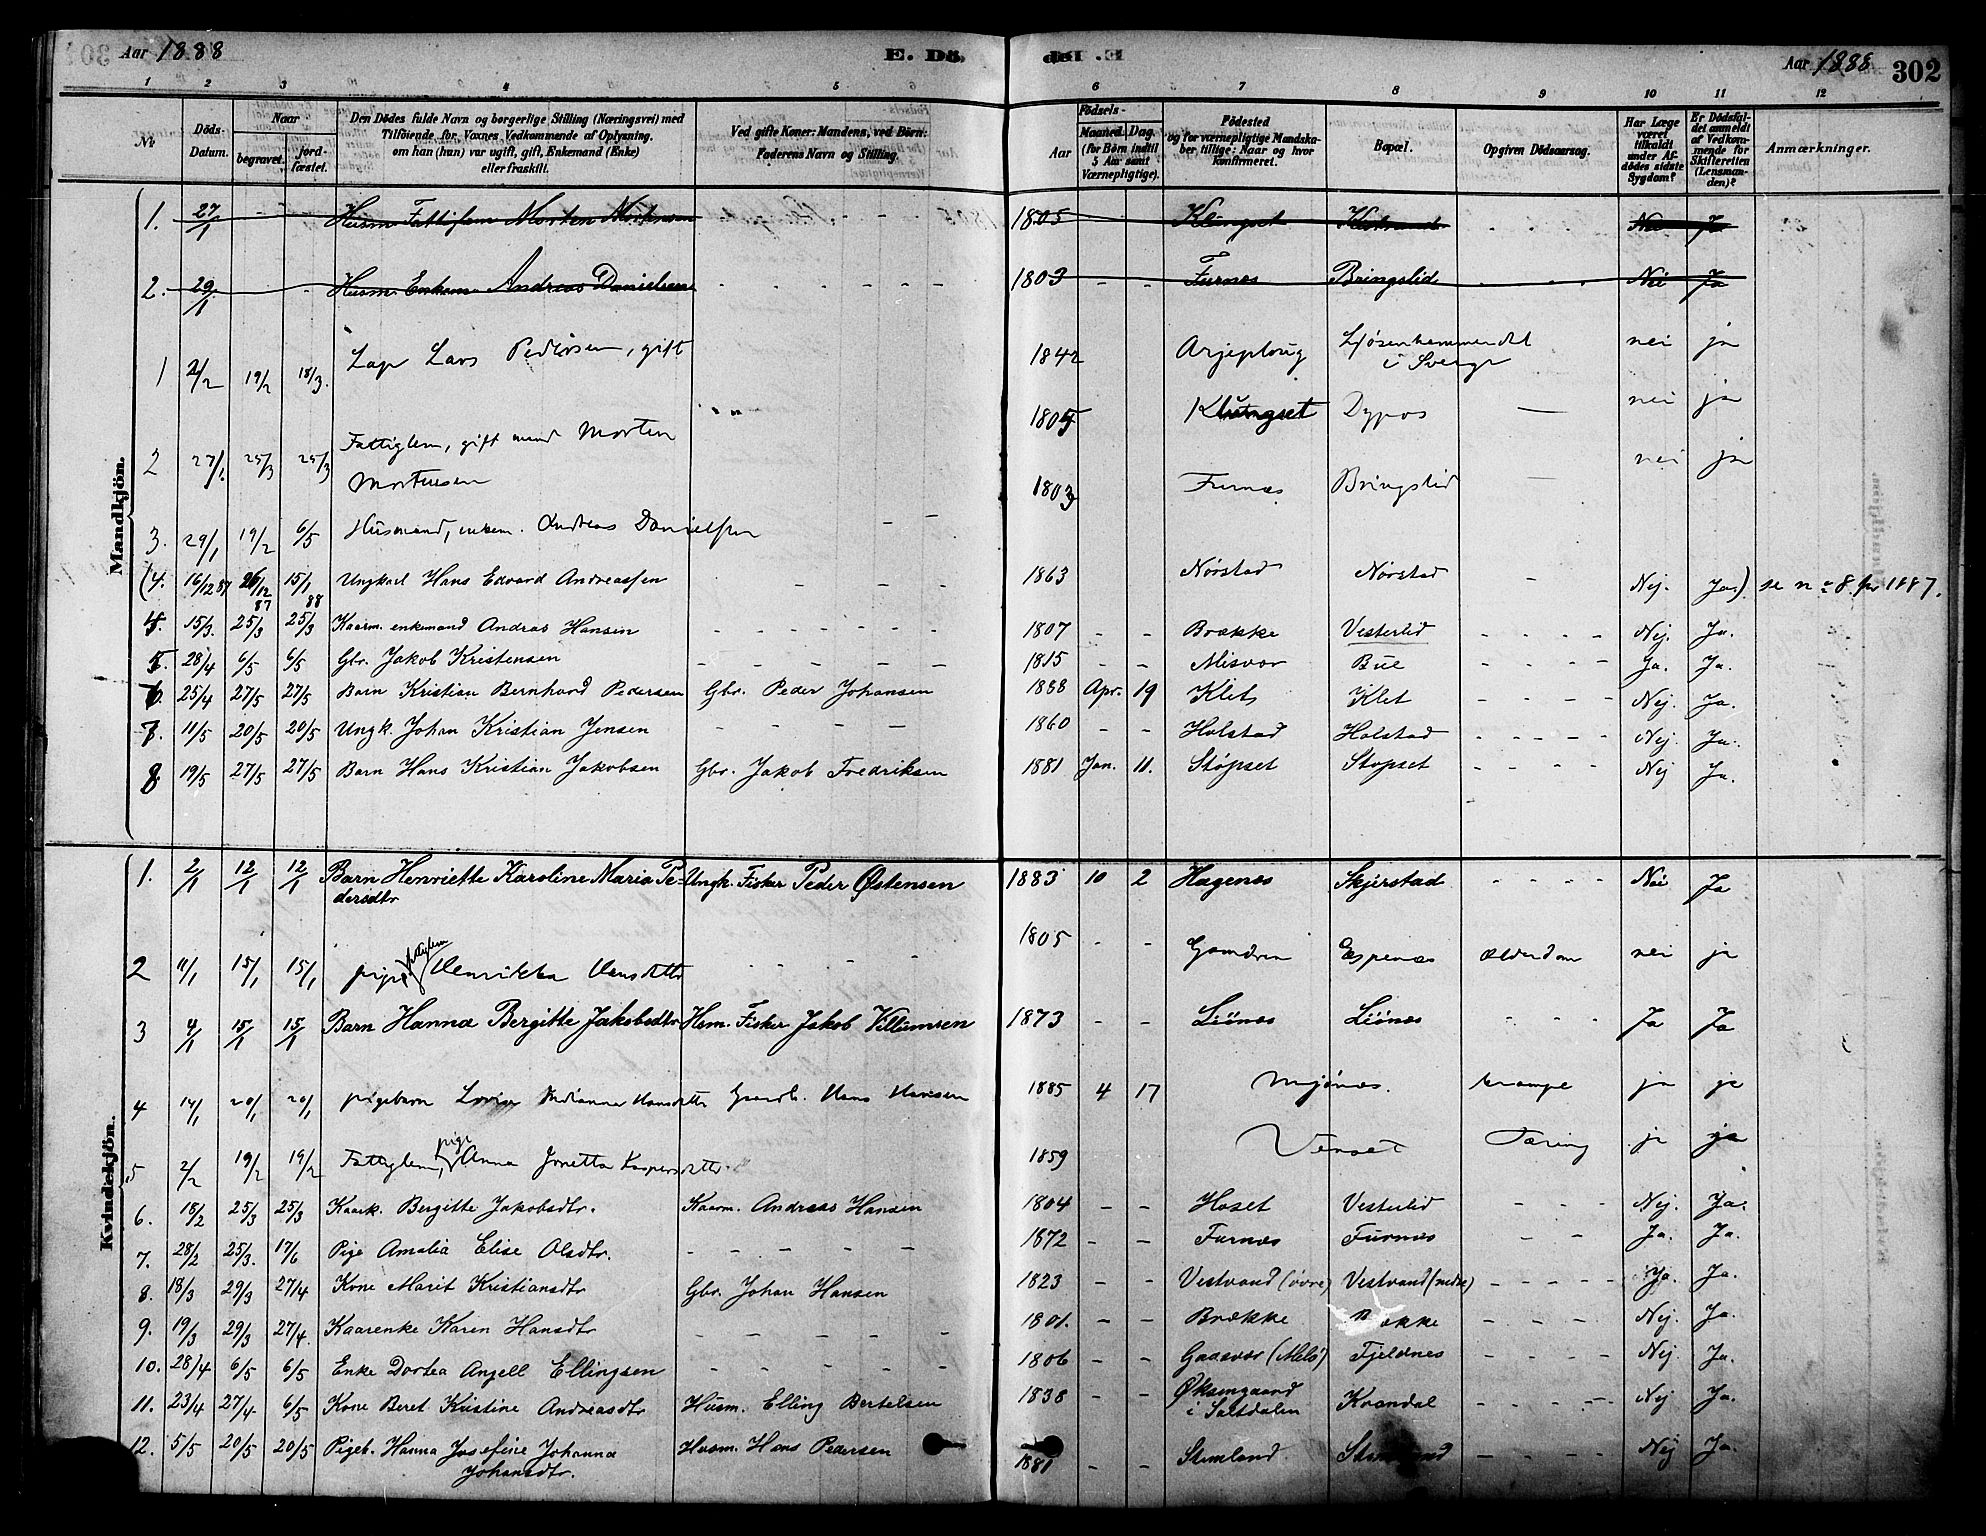 Aar 1888 E. Dö- de. E. Aar 1888 302
1 2 3 4 5 6 7 8 9 10 11 12
№ Döds-Datum. Naar begravet. jord-fæstet. Den Dödes fulde Navn og borgerlige Stilling (Næringsvei) med Tilföiende for Voxnes Vedkommende af Oplysning. om han (hun) var ugift, gift, Enkemand (Enke) eller fraskilt. Ved gifte Koner: Mandens, ved Börn: Faderens Navn og Stilling. Födsels- Aar Maaned. Dag. (for Börn indtil 5 Aar samt Værnepligtige). Födested og for værnepligtige Mandskaber tillige: Naar og hvor konfirmeret. Bopæl. Opgiven Dödsaarsag. Har Læge været tilkaldt under Afdödes sidste Sygdom? Er Dödsfaldet anmeldt af Vedkommende for Skifteretten (Lensmanden)? Anmærkninger.
Mandkjön.
1. 27/1 Husm. Fattiglem Morten Mortensen 1805 Klungset Nei Ja
2. 29/1 Husm. Enkem. Andreas Danielsen 1803 Furnes Bringslid Nei Ja
1 2/2 19/2 18/3. Lap Lars Pedersen, gift 1842 Arjeploug i Sverge nei ja
2 27/1. 25/3 25/3 Fattiglem, gift mand Morten Mortensen 1805 Klungset Dypos — nei ja
3. 29/1 19/2 6/5 Husmand, enkem. Andreas Danielsen 1803 Furnes Bringslid — nei ja
(4. 16/12 87 26/12 87 15/1 88 Ungkarl Hans Edvard Andreassen 1863 Nörstad Nörstad Nej. Ja.) se no 8 for 1887.
4. 15/3. 25/3 25/3 Kaarm. enkemand Andreas Hansen 1807 Brække Vesterlid Nej. Ja.
5. 28/4 6/5 6/5 Gbr. Jakob Kristensen 1815 Misvær Bue Ja. Ja.
6. 25/4 27/5 27/5 Barn Kristian Bernhard Pedersen Gbr. Peder Johansen 1888 Apr. 19 Klet Klet Nej. Ja.
7. 11/5 20/5 20/5 Ungk. Johan Kristian Jensen 1860 Holstad Holstad Nej. Ja.
8 19/5 27/5 27/5 Barn Hans Kristian Jakobsen Gbr. Jakob Fredriksen 1881 Jan. 11. Stöpset Stöpset Nej Ja.
Kvindekjön.
1. 2/1 12/1 12/1 Barn Henriette Karoline Maria Pe-dersdtr Ungk. Fisker Peder Østensen 1883 10 2 Hagenes Skjerstad Nei Ja
2 11/1 15/1 15/1 pige fattiglem Henrikka Hansdtr 1805 Espenes Alderdom nei ja
3 4/1 15/1 15/1 Barn Hanna Bergitte Jakobsdtr Hsm. Fisker Jakob Villumsen 1873 Liönes Liönes Ja Ja
4 14/1 20/1 20/1 pigebarn Lovise Indianna Hansdtr Gaardb. Hans Hansen 1885 4 17 Mjönes. krampe ja ja
5 2/2 19/2 19/2 Fattiglem, pige Anna Jonetta Kaspersdtr. 1859 Venset Tæring ja ja
6. 18/2 25/3 25/3 Kaark. Bergitte Jakobsdtr. Kaarm. Andreas Hansen 1804 Hoset Vesterlid Nej. Ja.
7. 28/2 25/3. 17/6 Pige Amalia Elise Olsdtr. 1872 Furnes Furnes Ja. Ja.
8. 18/3 29/3 27/4 Kone Marit Kristiansdtr Gbr. Johan Hansen 1823 Vestvand (övre) Vestvand (nedre) Ja. Ja.
9. 19/3 29/3 27/4. Kaarenke Karen Hansdtr 1801. Brække Brække Nej. Ja.
10. 28/4 6/5 6/5 Enke Dortea Angell Ellingsen 1806 Gaasvær (Melö) Fjeldnes Nej. Ja.
11. 23/4 27/4. 6/5 Kone Beret Kristine Andreasdtr Husm. Elling Bertelsen 1838 Øksengaard i Saltdalen Kvandal Nej Ja.
12. 5/5 20/5 20/5 Pigeb. Hanna Josefine Johanna Johansdtr. Husm. Hans Pedersen 1881 Stemland Stemland Nej Ja.